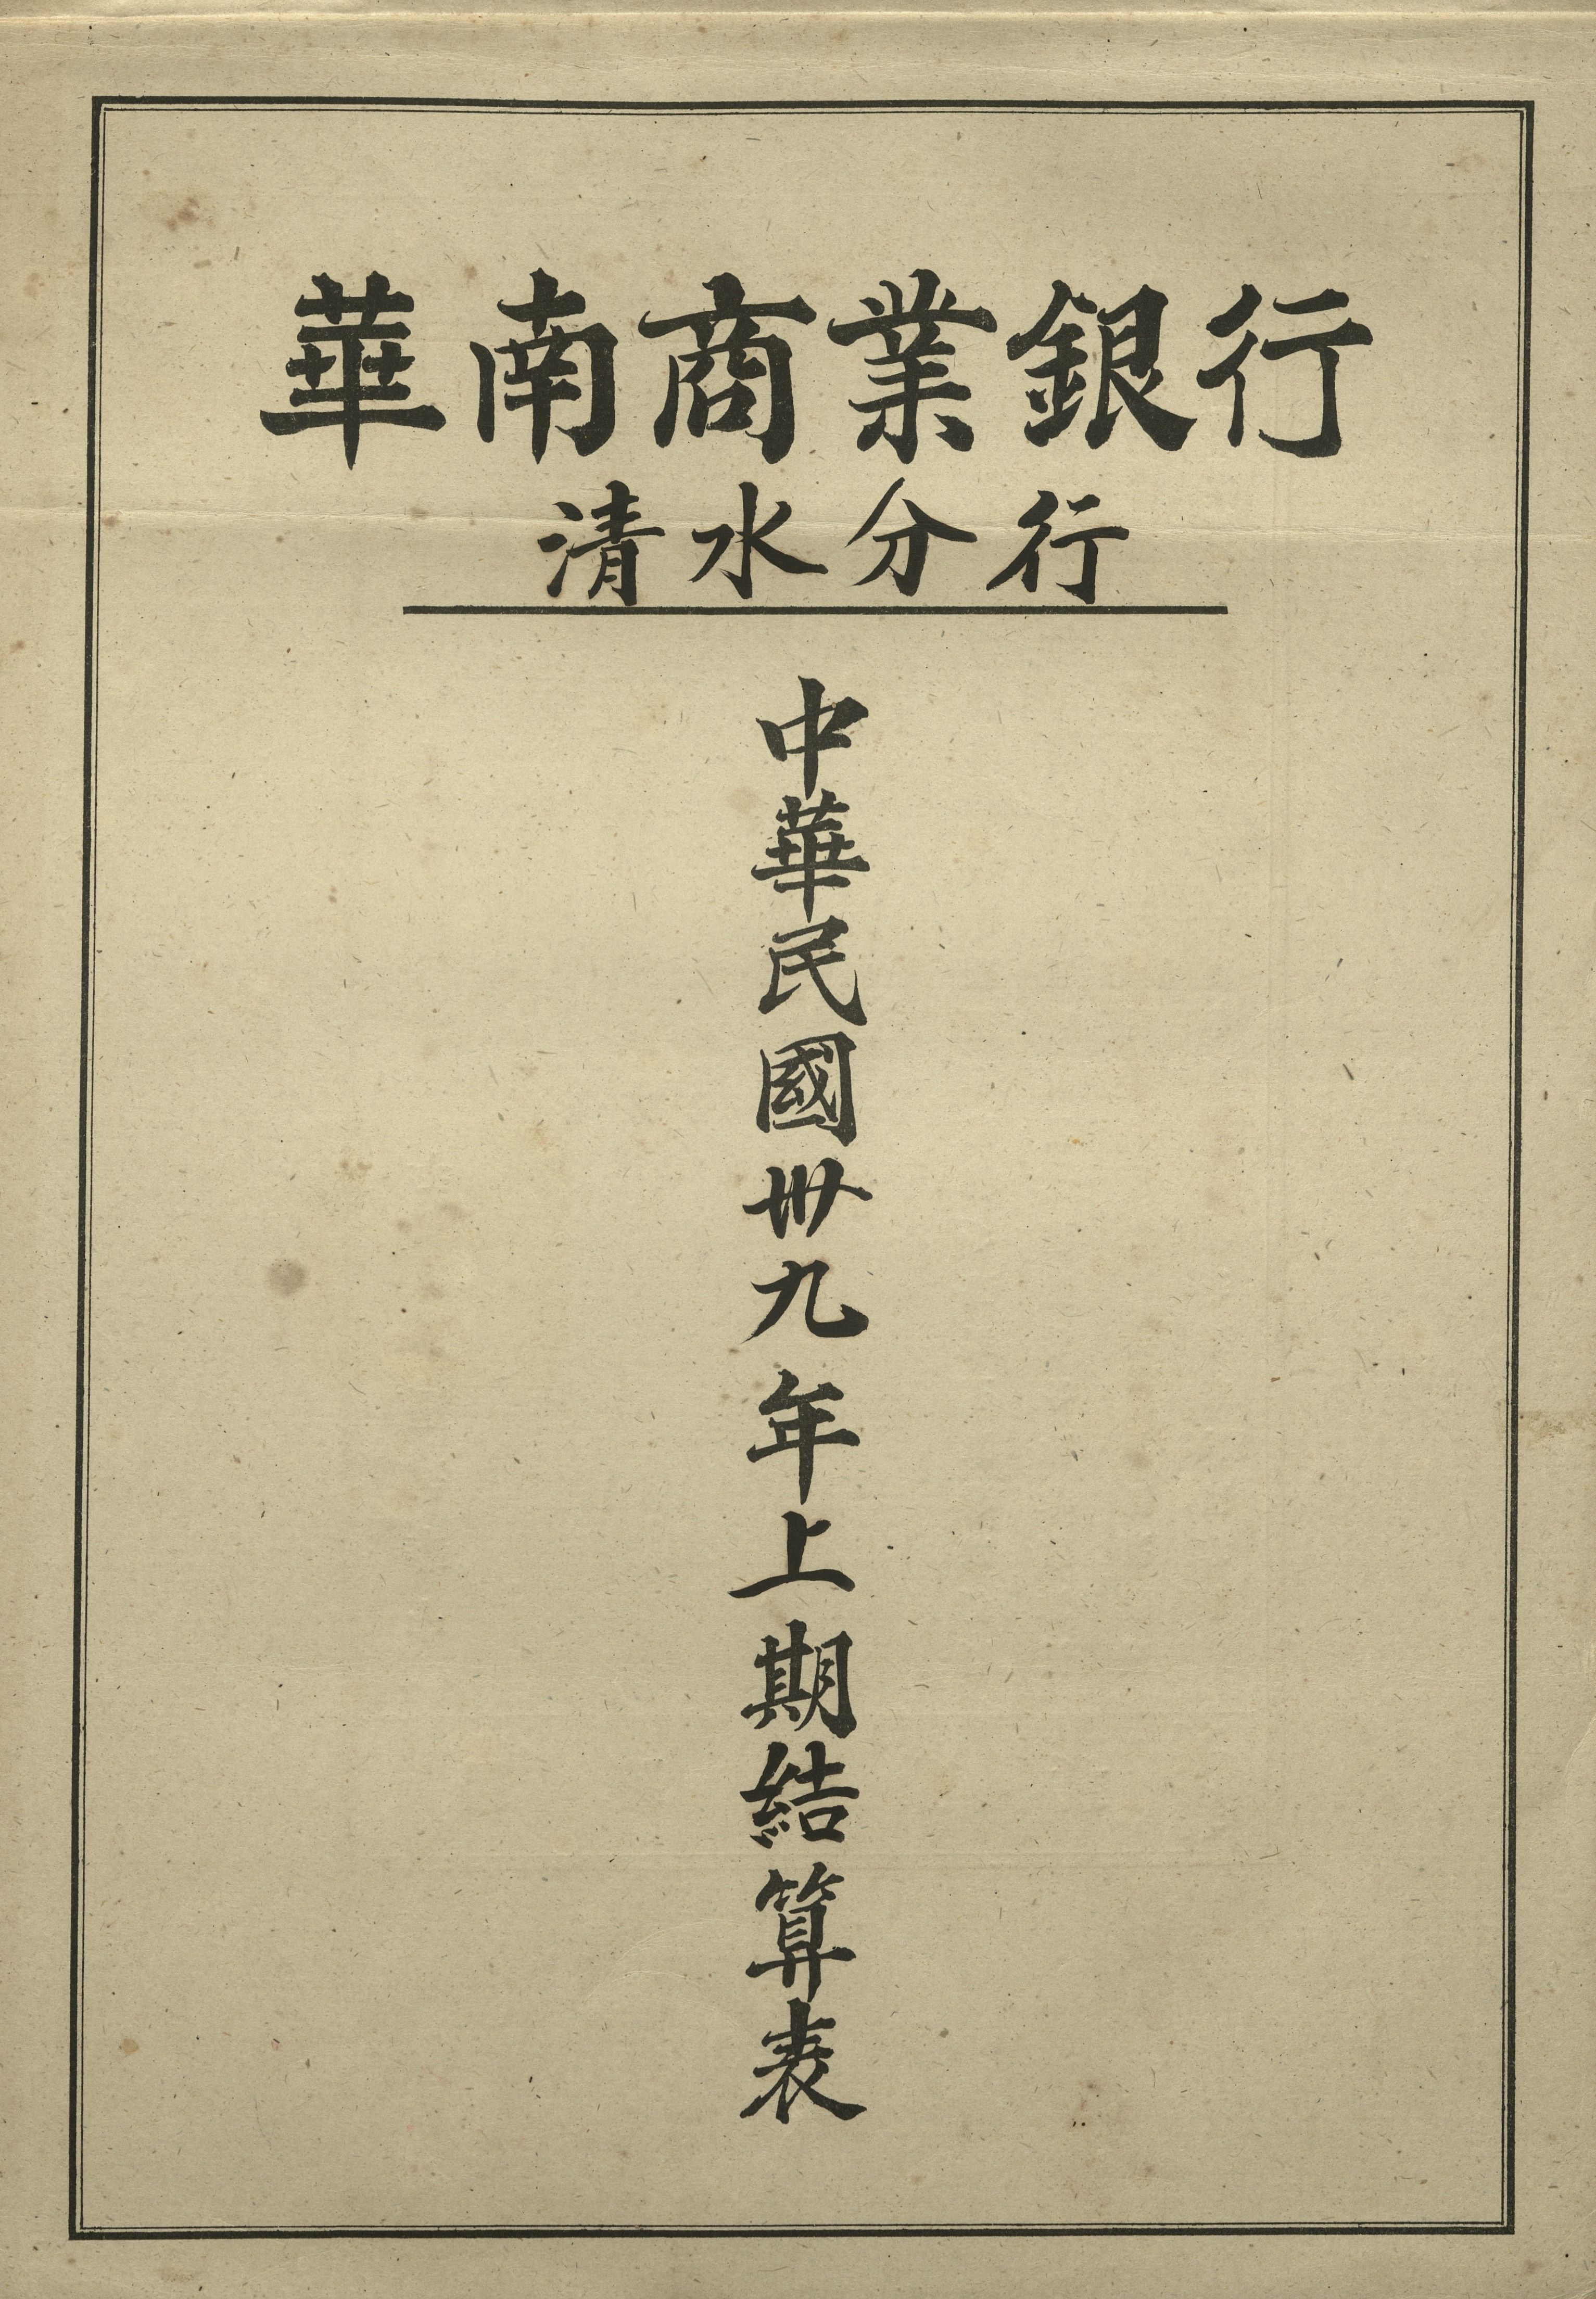 華南商業銀行
清水分行
中華民國卅九年上期結算表